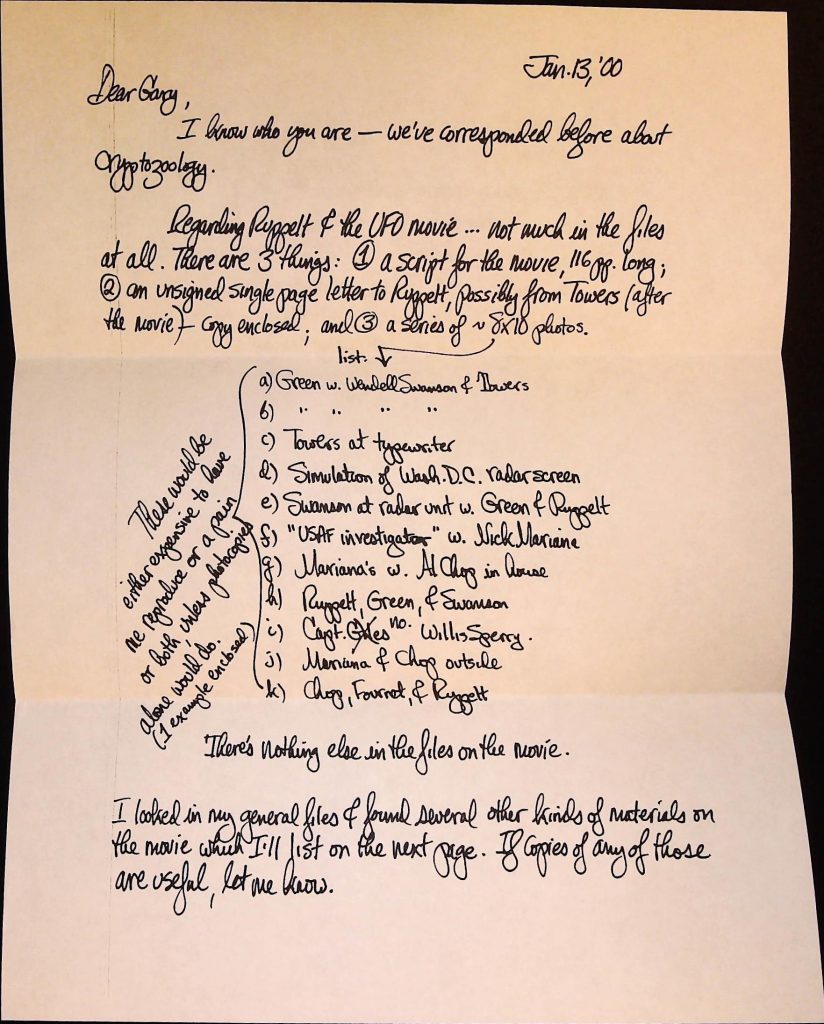 Jan. 13, '00
Dear Gary,
I know who you are — we've corresponded before about
Cryptozoology.
Regarding Ruppelt & the UFO movie ... not much in the files
at all. There are 3 things: ① a script for the movie, 116 pp. long;
② an unsigned single page letter to Ruppelt, possibly from Towers (after
the movie) – copy enclosed; and ③ a series of ~ 8x10 photos.
list: ↓
a) Green w. Wendell Swanson & Towers
b) " " " "
c) Towers at typewriter
d) Simulation of Wash. D.C. radar screen
e) Swanson at radar unit w. Green & Ruppelt
f) "USAF investigator" w. Nick Mariana
g) Mariana's w. Al Chop in house
h) Ruppelt, Green, & Swanson
i) Capt. no. Willis Sperry.
j) Mariana & Chop outside
k) Chop, Fournet, & Ruppelt
These would be
either expensive to have
me reproduce or a pain
or both, unless photocopies
alone would do.
(1 example enclosed)
There's nothing else in the files on the movie.
I looked in my general files & found several other kinds of materials on
the movie which I'll list on the next page. If copies of any of those
are useful, let me know.